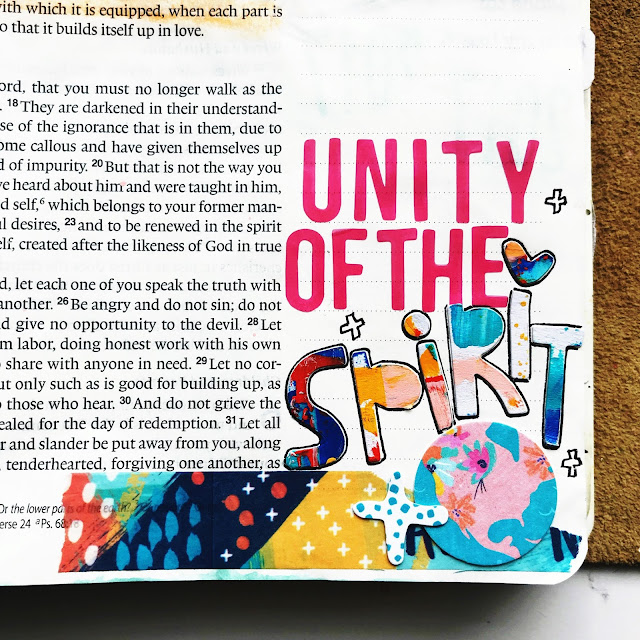 with which it is equipped, when each part is
o that it builds itself up in love.
ord, that you must no longer walk as the
. 18 They are darkened in their understand-
se of the ignorance that is in them, due to
ome callous and have given themselves up
d of impurity. 20 But that is not the way you
ve heard about him and were taught in him,
d self,6 which belongs to your former man-
ul desires, 23 and to be renewed in the spirit
elf, created after the likeness of God in true
d, let each one of you speak the truth with
another. 26 Be angry and do not sin; do not
nd give no opportunity to the devil. 28 Let
m labor, doing honest work with his own
o share with anyone in need. 29 Let no cor-
ut only such as is good for building up, as
o those who hear. 30 And do not grieve the
ealed for the day of redemption. 31 Let all
r and slander be put away from you, along
, tenderhearted, forgiving one another, as
Or the lower parts of the earth?
erse 24 a Ps. 68:18
UNITY
OF THE
SPIRIT